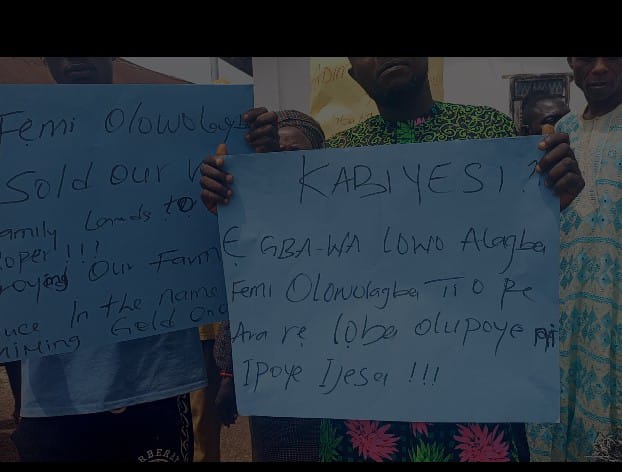 Femi Olowolagba
Sold our
amily Lands to
loper !!!
roying Our Farm
uce In the name
MiMing Gold On
KABIYESI ?
Ẹ GBA-WA LOWO Alagba
Femi Olowolagba Ti O Pe
Ara rẹ lọba olupoye
IPOYE IJESA !!!